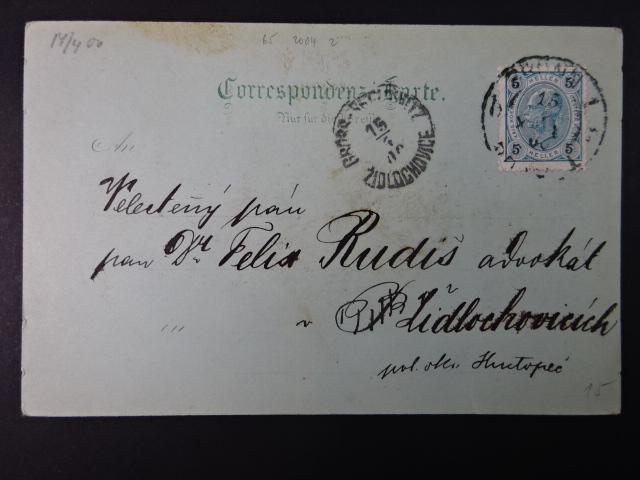 14/4 00
65 2004 2
Correspondenz-Karte.
Nur für die Adresse
GROSS-SEELOWITZ
15/4 00
ŽIDLOCHOVICE
5 HELLER 5
5 HELLER 5
15
An
Velectěný pán
pan Dr. Felix Rudiš advokát
" v Židlochovicích
pol. okr. Hustopeč
15